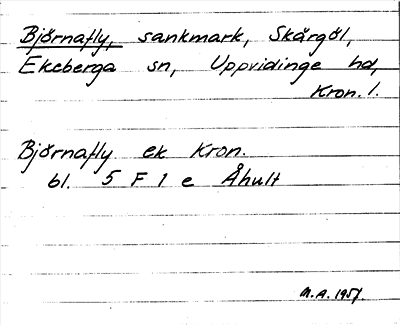 Björnafly, sankmark, Skärgöl,
Ekeberga sn, Uppvidinge hd,
Kron. l.
Björnafly ek Kron.
bl. 5 F 1 e Åhult
M.A. 1951.